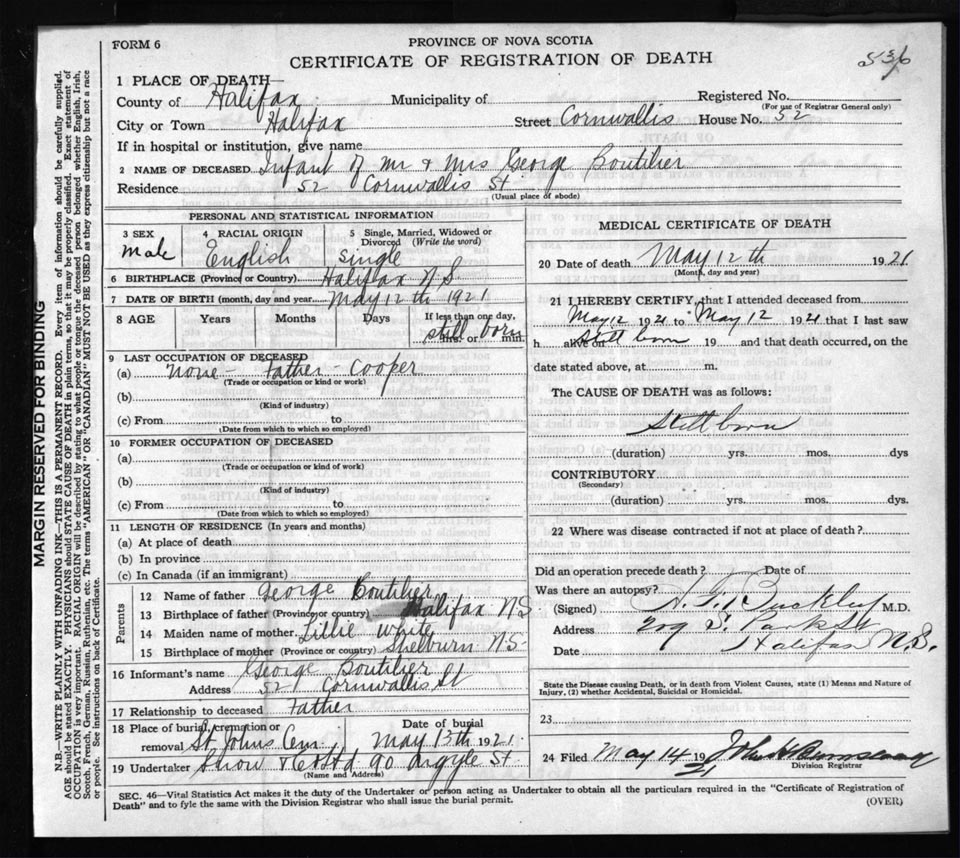 FORM 6
PROVINCE OF NOVA SCOTIA
CERTIFICATE OF REGISTRATION OF DEATH
536
1 PLACE OF DEATH—
County of Halifax Municipality of Registered No.
(For use of Registrar General only)
City or Town Halifax Street Cornwallis House No. 52
If in hospital or institution, give name
2 NAME OF DECEASED Infant of Mr & Mrs George Boutilier
Residence 52 Cornwallis St
(Usual place of abode)
PERSONAL AND STATISTICAL INFORMATION
3 SEX
male
4 RACIAL ORIGIN
English
5 Single, Married, Widowed or
Divorced (Write the word)
Single
6 BIRTHPLACE (Province or Country). Halifax N S
7 DATE OF BIRTH (month, day and year May 12th 1921
8 AGE Years Months Days If less than one day,
still born
hrs. or min.
9 LAST OCCUPATION OF DECEASED
(a) None - Father - Cooper
(Trade or occupation or kind or work)
(b)
(Kind of industry)
(c) From to
(Date from which to which so employed)
10 FORMER OCCUPATION OF DECEASED
(a)
(Trade or occupation or kind of work)
(b)
(Kind of industry)
(c) From to
(Date from which to which so employed)
11 LENGTH OF RESIDENCE (In years and months)
(a) At place of death
(b) In province
(c) In Canada (if an immigrant)
Parents
12 Name of father George Boutilier
13 Birthplace of father (Province or country) Halifax N S
14 Maiden name of mother Lillie White
15 Birthplace of mother (Province or country) Shelburn N.S.
16 Informant's name George Boutilier
Address 52 Cornwallis St
17 Relationship to deceased Father
18 Place of burial, cremation or Date of burial
removal St Johns Cem May 13th 1921
19 Undertaker Snow & Co Ltd 90 Argyle St.
(Name and Address)
MEDICAL CERTIFICATE OF DEATH
20 Date of death May 12th 1921
(Month, day and year)
21 I HEREBY CERTIFY, that I attended deceased from
May 12 1921 to May 12 1921 that I last saw
h alive on Still born 19 and that death occurred, on the
date stated above, at m.
The CAUSE OF DEATH was as follows:
Still born
(duration) yrs. mos. dys
CONTRIBUTORY
(Secondary)
(duration) yrs. mos. dys.
22 Where was disease contracted if not at place of death?
Did an operation precede death? Date of
Was there an autopsy?
(Signed) Buckley M.D.
Address 209 S. Park St
Date Halifax N.S.
State the Disease causing Death, or in death from Violent Causes, state (1) Means and Nature of
Injury, (2) whether Accidental, Suicidal or Homicidal.
23
24 Filed May 14 1921 John
Division Registrar
SEC. 46—Vital Statistics Act makes it the duty of the Undertaker or person acting as Undertaker to obtain all the particulars required in the "Certificate of Registration of
Death" and to fyle the same with the Division Registrar who shall issue the burial permit.
(OVER)
MARGIN RESERVED FOR BINDING
N.B.—WRITE PLAINLY WITH UNFADING INK—THIS IS A PERMANENT RECORD. Every item of information should be carefully supplied.
AGE should be stated EXACTLY. PHYSICIANS should STATE CAUSE OF DEATH in plain terms, so that it may be properly classified. Exact statement of
OCCUPATION is very important. RACIAL ORIGIN will be described by stating to what people or tongue the deceased person belonged whether English, Irish,
Scotch, French, German, Russian, Ruthenian, etc. The terms "AMERICAN" OR "CANADIAN" MUST NOT BE USED as they express citizenship but not a race
or people. See instructions on back of Certificate.